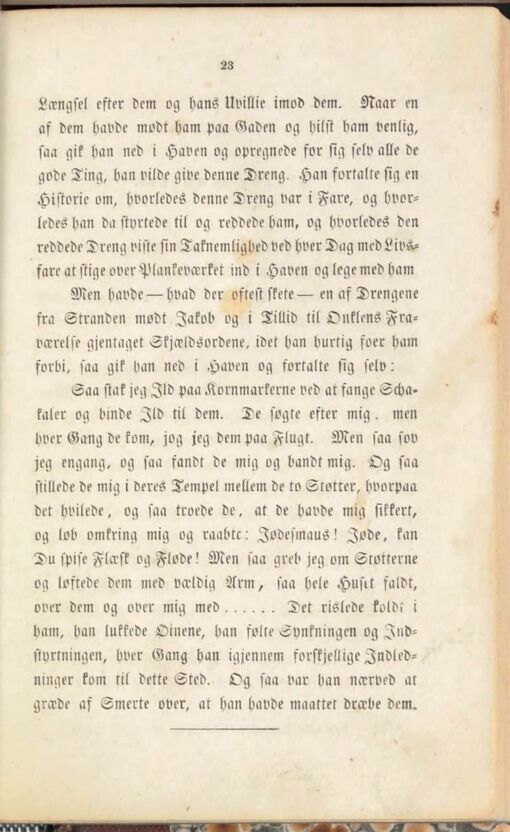 23
Længsel efter dem og hans Uvillie imod dem. Naar en
af dem havde mødt ham paa Gaden og hilst ham venlig,
saa gik han ned i Haven og opregnede for sig selv alle de
gode Ting, han vilde give denne Dreng. Han fortalte sig en
Historie om, hvorledes denne Dreng var i Fare, og hvor=
ledes han da styrtede til og reddede ham, og hvorledes den
reddede Dreng viste sin Taknemlighed ved hver Dag med Livs=
fare at stige over Plankeværket ind i Haven og lege med ham
Men havde — hvad der oftest skete — en af Drengene
fra Stranden mødt Jakob og i Tillid til Onklens Fra=
værelse gjentaget Skjældsordene, idet han hurtig foer ham
forbi, saa gik han ned i Haven og fortalte sig selv:
Saa stak jeg Ild paa Kornmarkerne ved at fange Scha=
kaler og binde Ild til dem. De søgte efter mig. men
hver Gang de kom, jog jeg dem paa Flugt. Men saa sov
jeg engang, og saa fandt de mig og bandt mig. Og saa
stillede de mig i deres Tempel mellem de to Støtter, hvorpaa
det hvilede, og saa troede de, at de havde mig sikkert,
og løb omkring mig og raabte: Jødesmaus! Jøde, kan
Du spise Flæsk og Fløde! Men saa greb jeg om Støtterne
og løftede dem med vældig Arm, saa hele Huset faldt,
over dem og over mig med ...... Det rislede koldt i
ham, han lukkede Øinene, han følte Synkningen og Ind=
styrtningen, hver Gang han igjennem forskjellige Indled=
ninger kom til dette Sted. Og saa var han nærved at
græde af Smerte over, at han havde maattet dræbe dem.